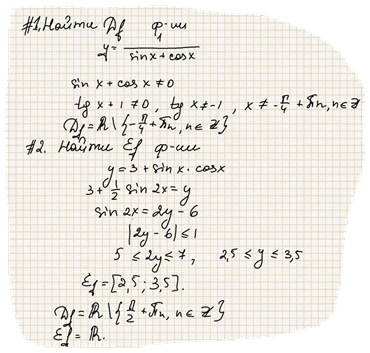 #1. Найти Df ф-ии
y = 1/(sinx + cosx)
sin x + cos x ≠ 0
tg x + 1 ≠ 0, tg x ≠ -1, x ≠ -π/4 + πn, n ∈ Z
Df = R \ {-π/4 + πn, n ∈ Z}
#2. Найти Ef ф-ии
y = 3 + sin x · cosx
3 + 1/2 sin 2x = y
sin 2x = 2y - 6
|2y - 6| ≤ 1
5 ≤ 2y ≤ 7, 2,5 ≤ y ≤ 3,5
Ef = [2,5; 3,5].
Df = R \ {π/2 + πn, n ∈ Z}
Ef = R.